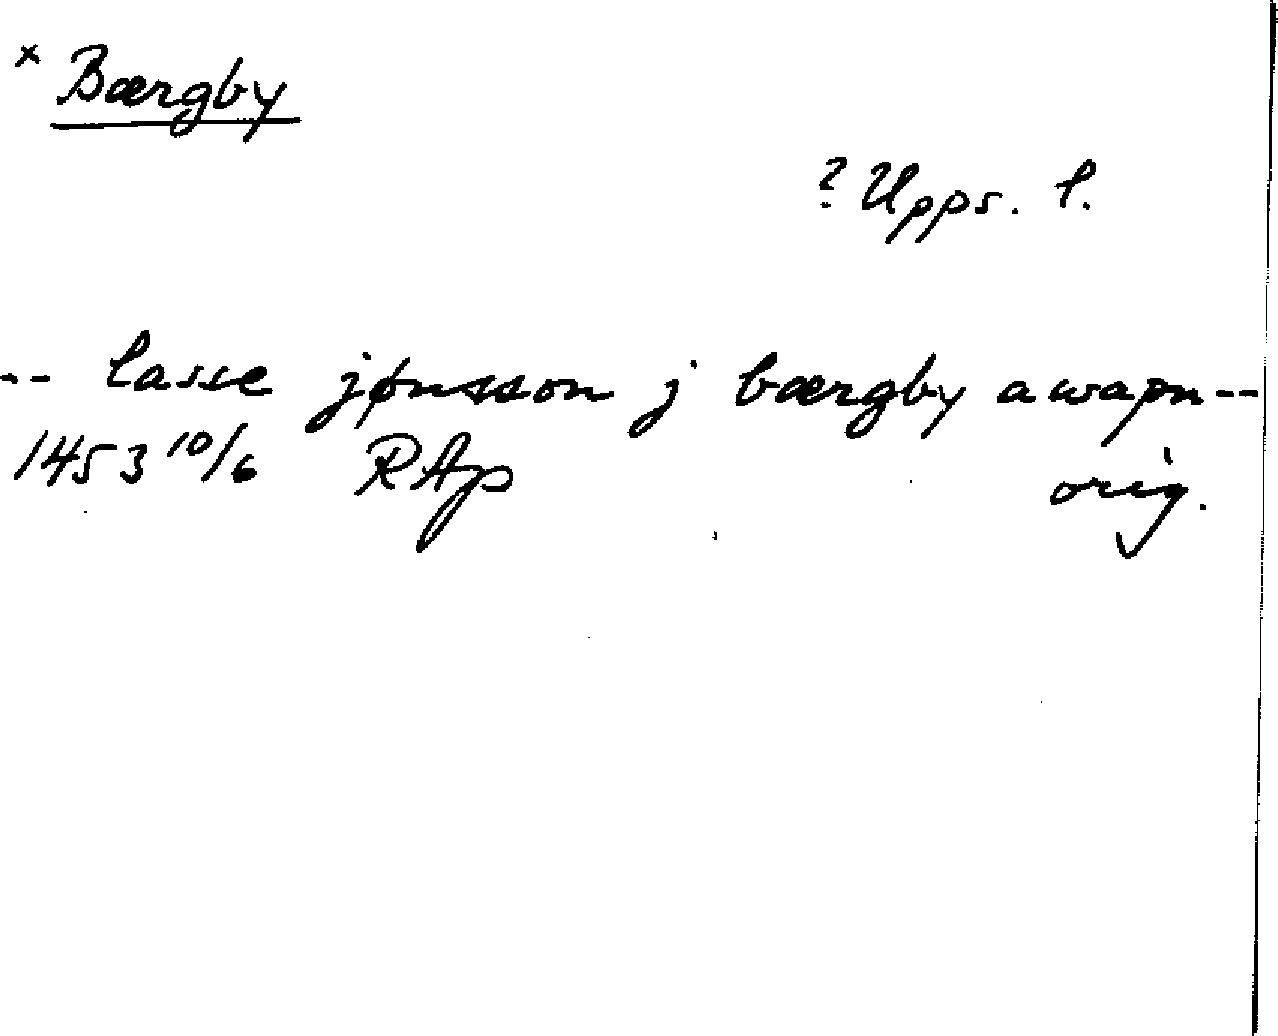 x Bærgby
? Upps. l.
-- lasse jønsson j bærgby awapn--
1453 10/6 RAp orig.